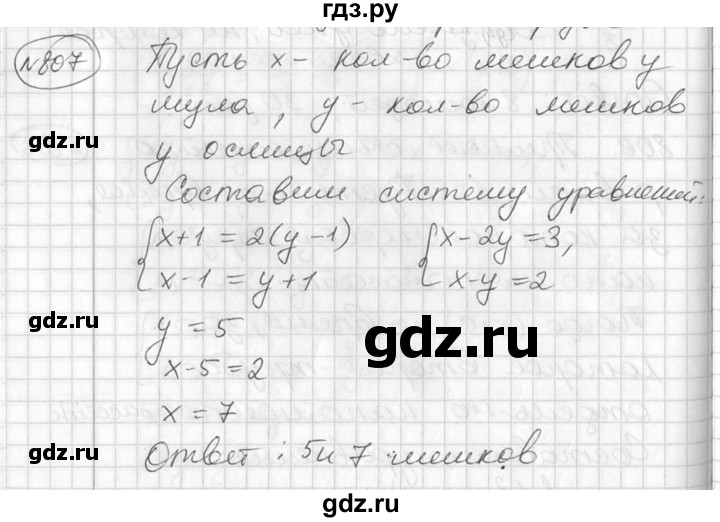 гдз.ру
№807 Пусть x - кол-во мешков у
мула, y - кол-во мешков
у ослицы
gdz.ru gdz.ru
Составим систему уравнений:
x+1 = 2(y-1) x-2y=3,
x-1 = y+1 x-y=2
gdz.ru y = 5
gdz.ru
x-5=2
x = 7
gdz.ru Ответ: 5 и 7 мешков gdz.ru
gdz.ru